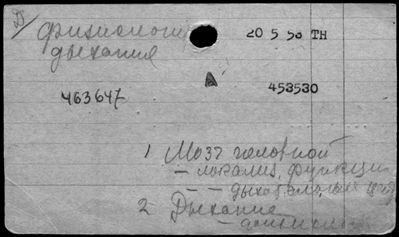 физиологи
дыхания
20 5 53 TH
463647
453530
1 Мозг головной
— локализ. функции
— — дыхательный
2 Дыхание
—